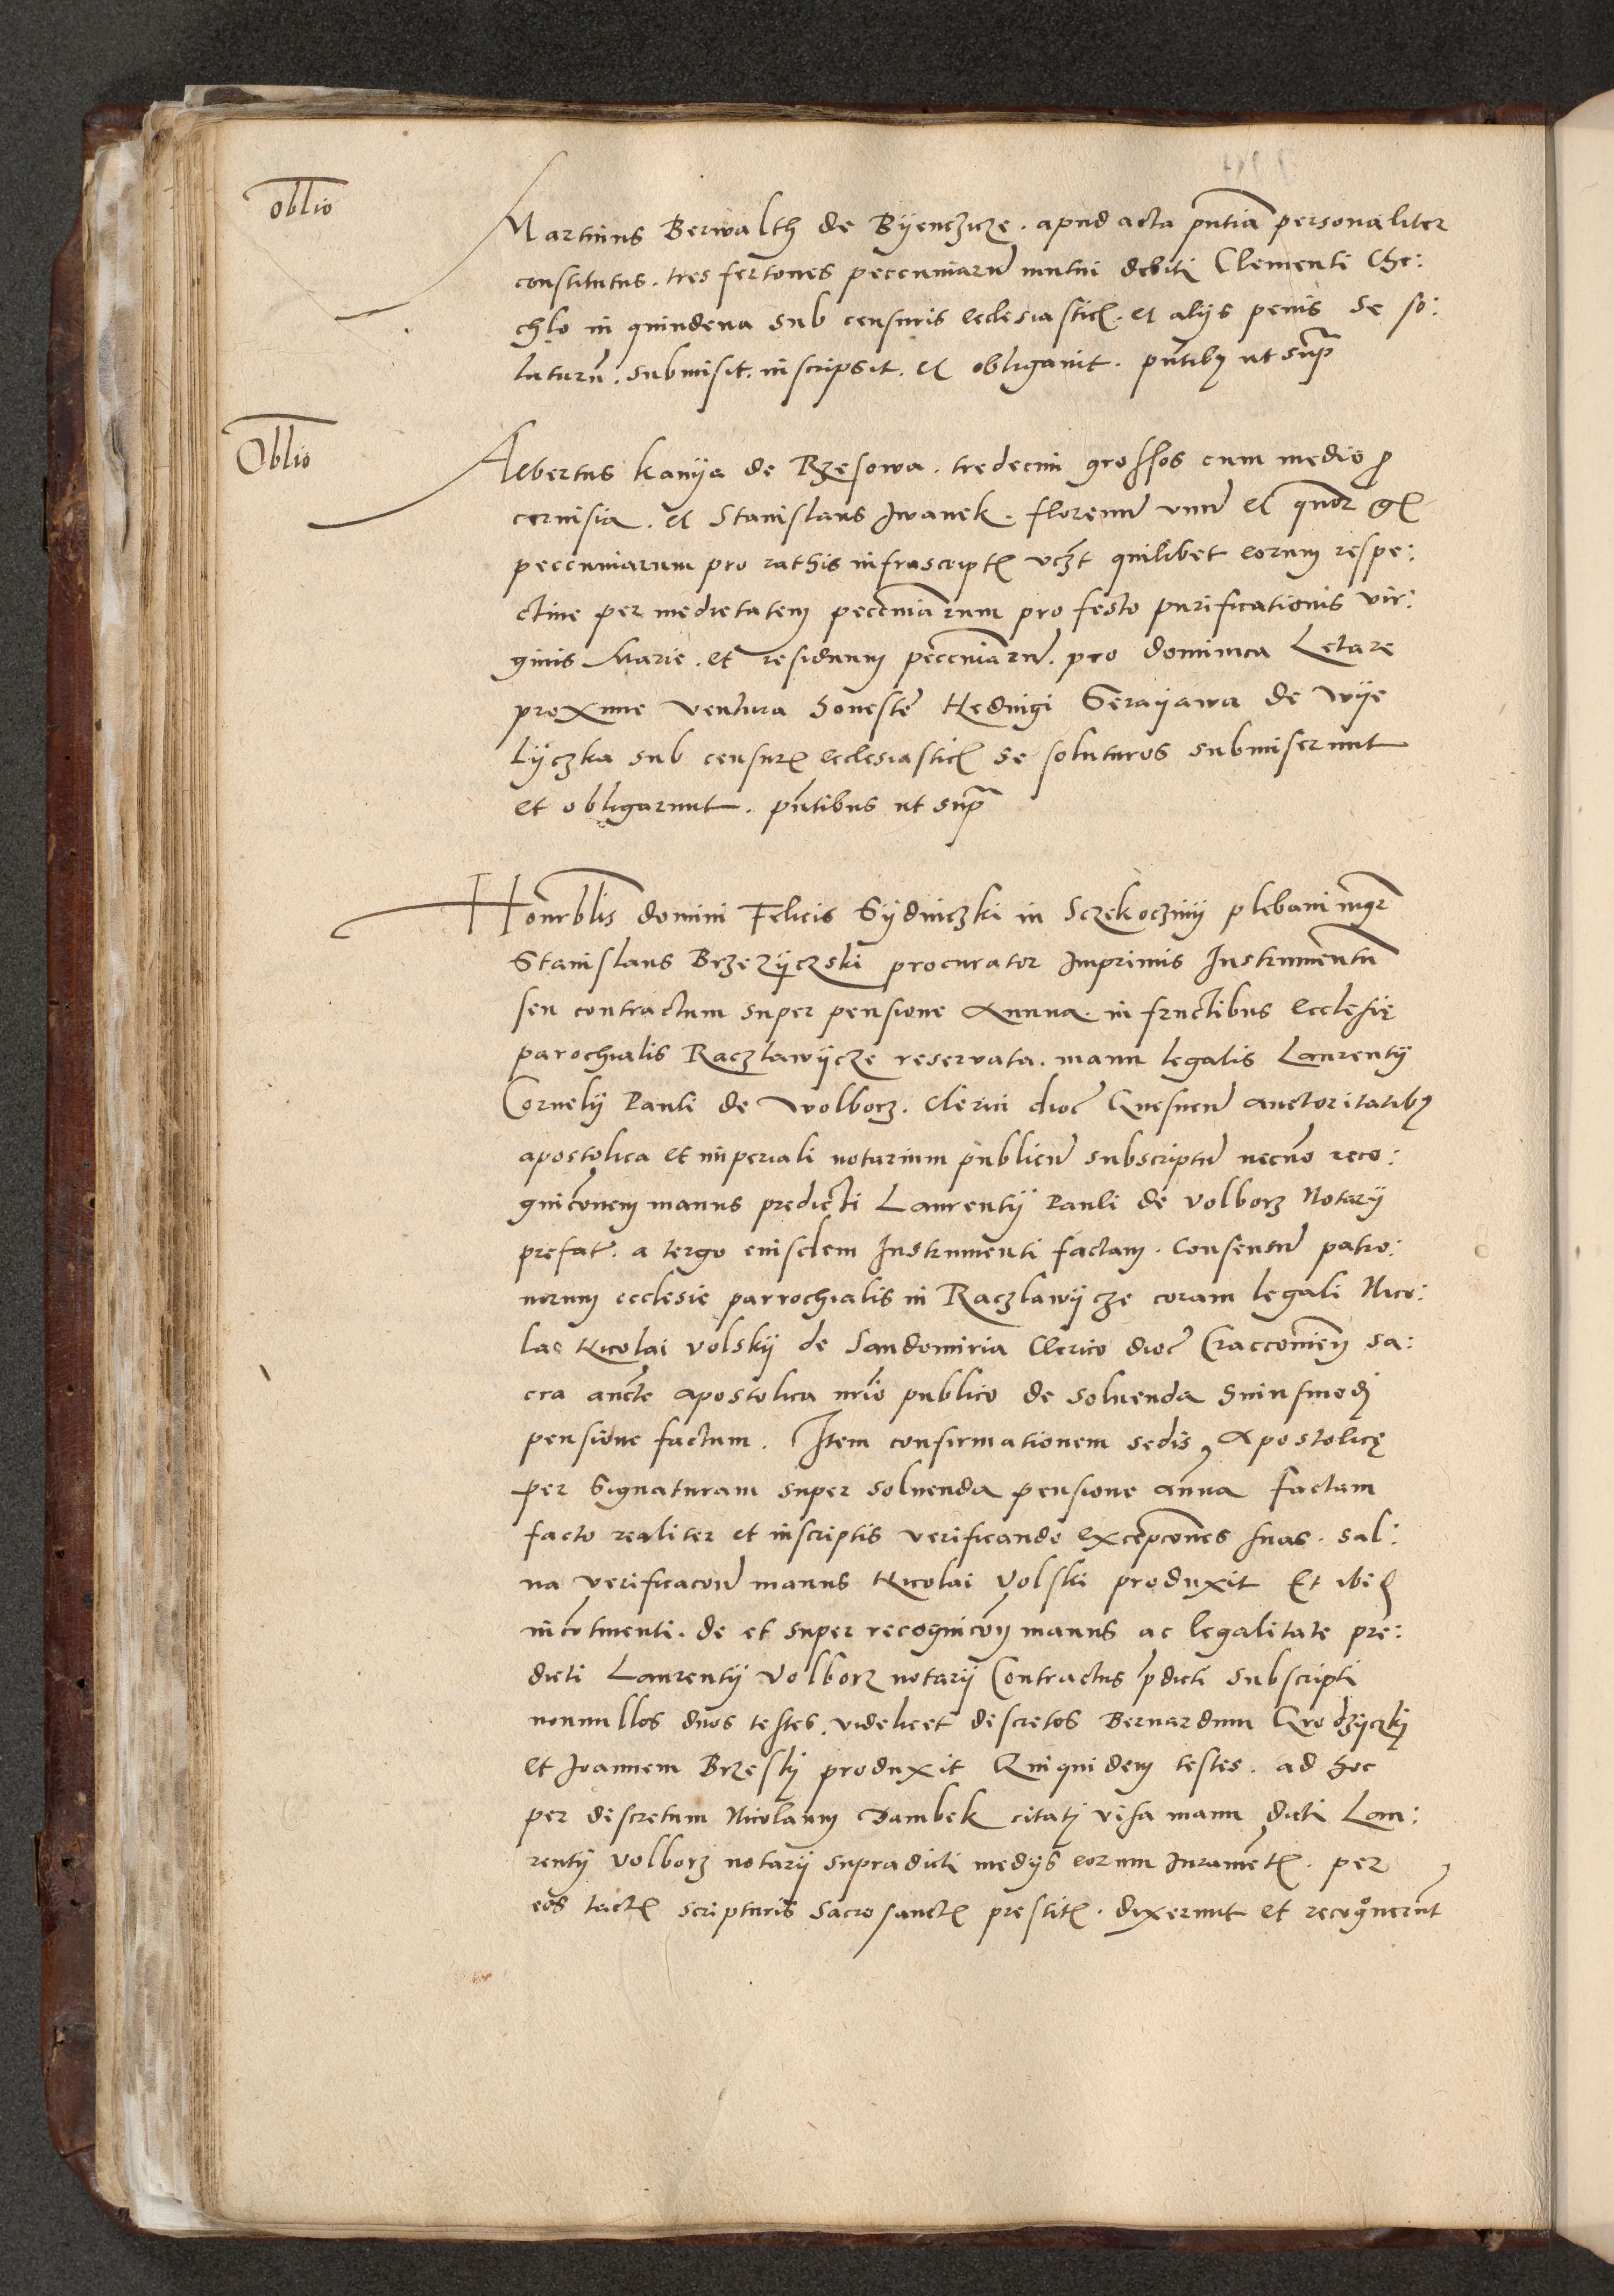 oblio
Martinus Berwalth de Byenczicze . apud acta pntia personaliter
constitutus . tres fertones pecuniaru mutui debiti Clementi Che:
chlo in quindena sub censuris ecclesiastic . et alijs penis se so:
luturu . submisit . inscripsit . et obligauit . pntibus ut supra
Oblio
Albertus Kanya de Rzesowa . tredecim grossos cum medio pro
ceruisia . et Stanislaus Iwanek . florenu vnu et quor gr
pecuniarum pro rathis infrascriptis vczt quilibet eorum respe:
ctiue per medietatem pecuniarum pro festo purificationis vir:
ginis Marie . et residuum pecuniaru . pro dominica Letare
proxime ventura honeste Heduigi Gerayawa de Wye
lyczka sub censuris ecclesiastic se soluturos submiserunt
et obligarunt . pntibus ut supra
Honrblis domini Felicis Gydniczki in Sczekocziny plebani mgr
Stanislaus Brzezyczski procurator Imprimis Instrumentu
seu contractum super pensione Annua . in fructibus Ecclesię
parochialis Raczlawycze reseruata . manu legalis Laurentij
Cornelij Pauli de Wolborz . Clerici dioc Gnesnen auctoritatibus
apostolica et imperiali notarium publicu subscriptu necno reco:
gniconem manus predicti Laurentij Pauli de Volborz Notarij
prefat . a tergo eiusdem Instrumenti factam . Consensu patro:
norum ecclesie parrochialis in Raczlawycze coram legali Nico:
lao Nicolai Volskij de Sandomiria Clerico dioc Craccouien sa:
cra aucte apostolica nrio publico de soluenda huiusmodi
pensione factum . Item confirmationem sedis Apostolicę
per Signaturam super soluenda pensione annua factam
facto realiter et in scriptis verificando excepcones suas . sal:
ua verificacou manus Nicolai Volski produxit Et ibid
incotinenti . de et super recognicoe manus ac legalitate pre:
dicti Laurentij Volborz notarij Contractus pdicti subscripti
nonnullos duos testes . videlicet discretos Bernardum Grodzyczki
et Ioannem Brzeski produxit Quiquidem testes . ad hoc
per discretum Nicolaum Dambek citati visa manu dicti Lau:
rentij Volborz notarij supradicti medijs eorum Iurametis . per
eos tactis scripturis sacrosanctis prestitis . dixerunt et recognouerut